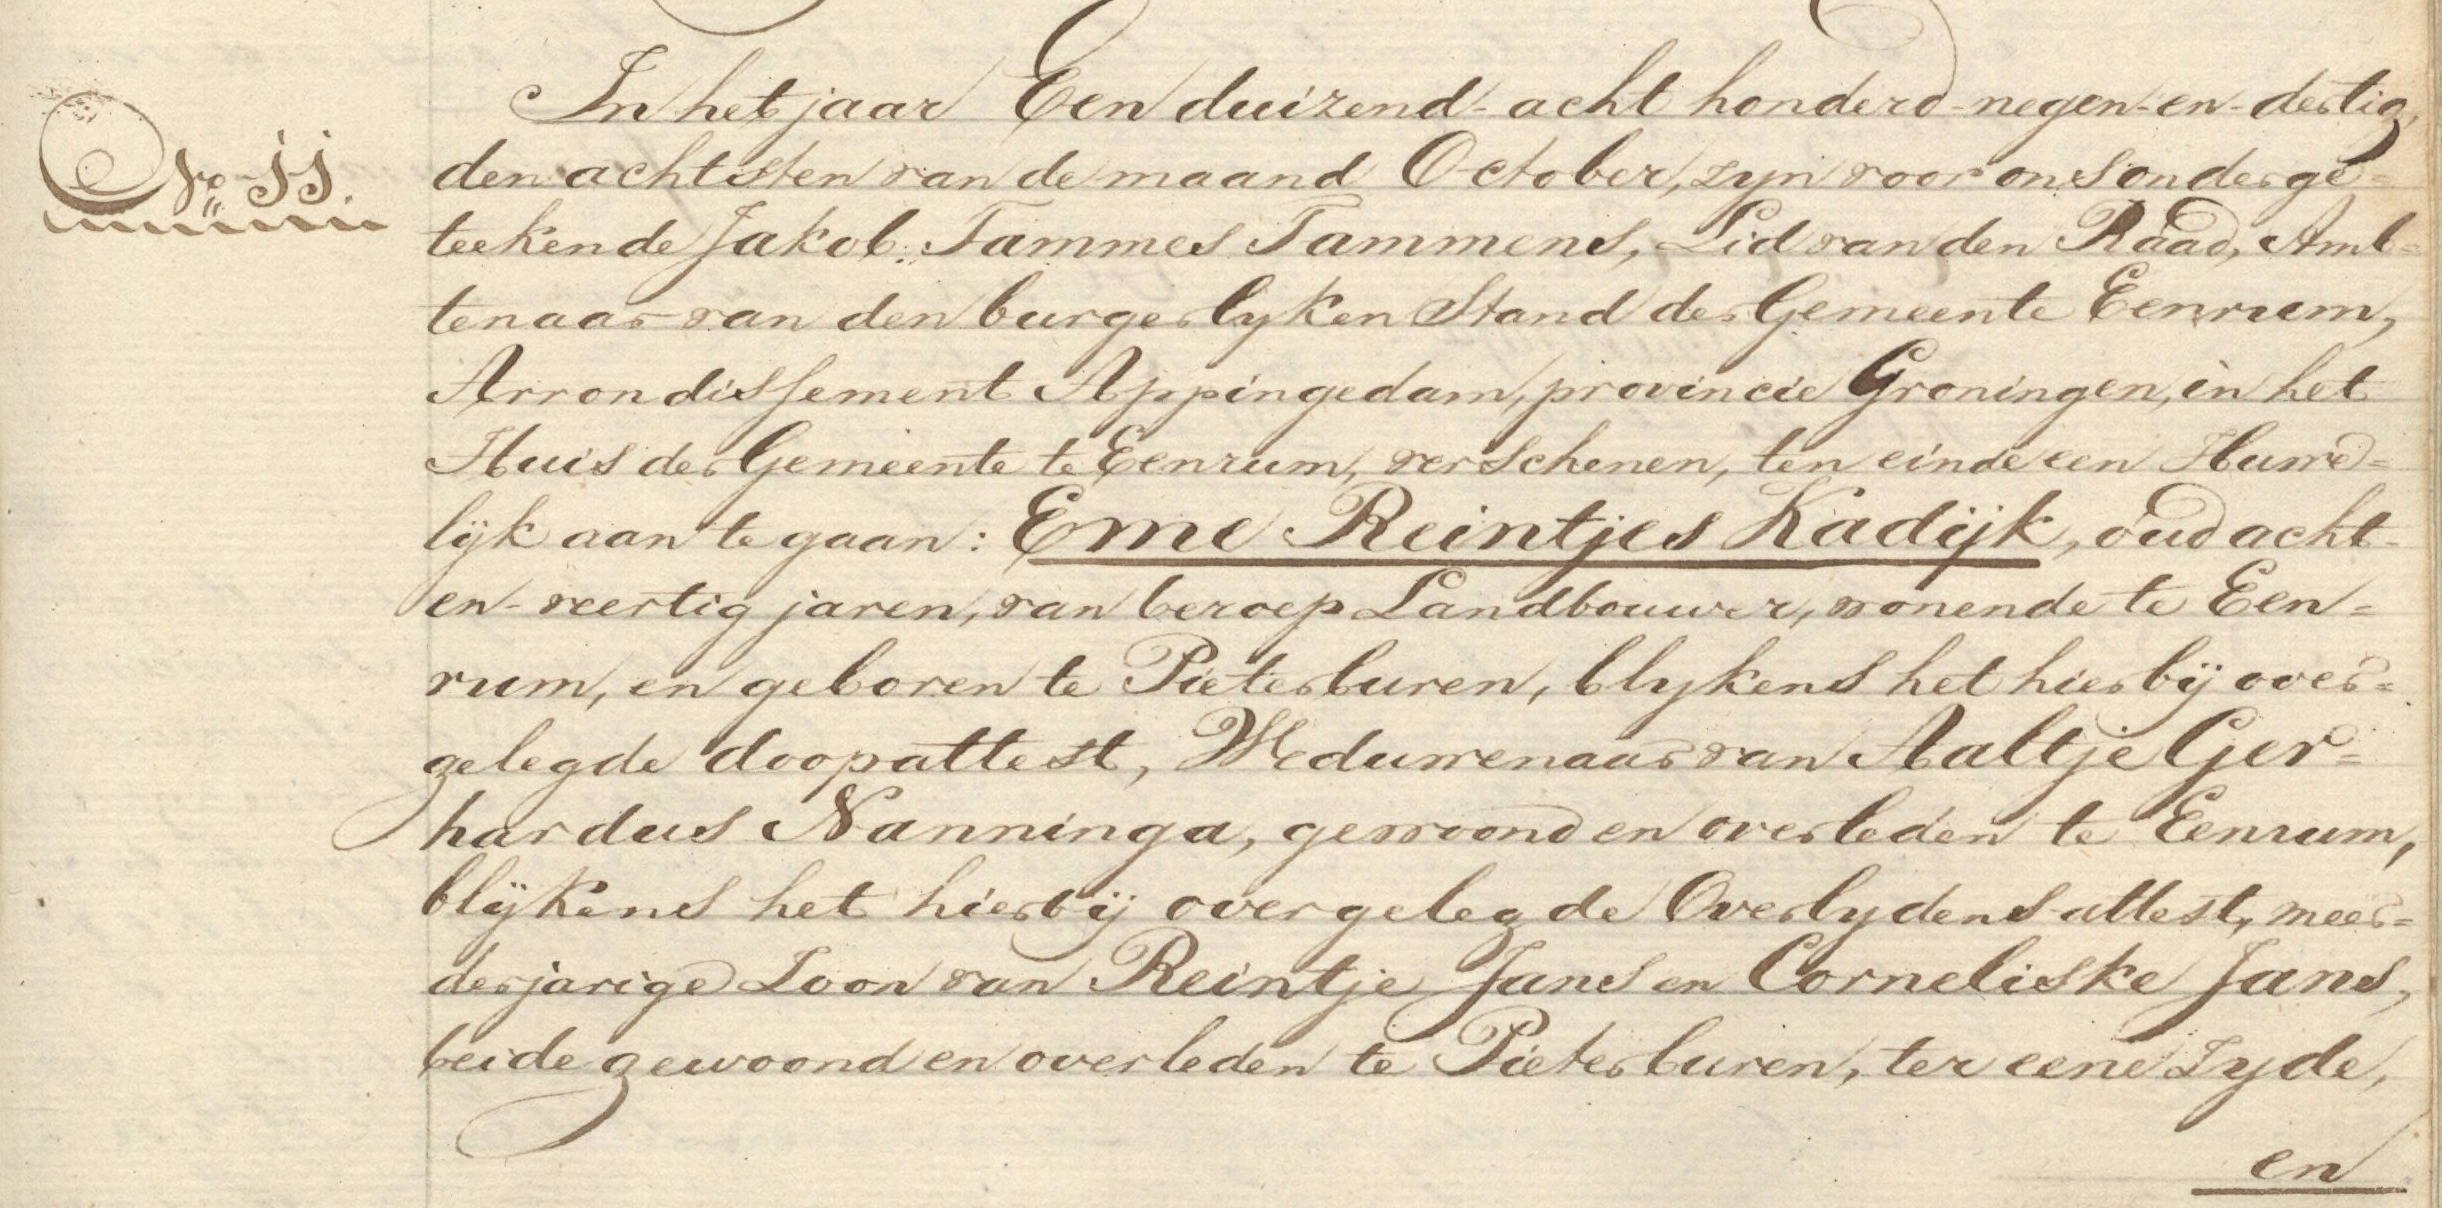 No. 11.
In het jaar Een duizend- acht honderd-negen-en-dertig,
den achtsten van de maand October, zyn voor ons onderge=
teekende Jakob Tammes Tammens, Lid van den Raad, Amb=
tenaar van den burgerlyken Stand der Gemeente Eenrum,
Arrondissement Appingedam, provincie Groningen, in het
Huis der Gemeente te Eenrum, verschenen, ten einde een Huwe=
lijk aan te gaan: Eme Reintjes Kadijk, oud acht-
en-veertig jaren, van beroep Landbouwer, wonende te Een=
rum, en geboren te Pieterburen, blykens het hierbij over=
gelegde doopattest, Weduwenaar van Aaltje Ger=
hardus Nanninga, gewoond en overleden te Eenrum,
blijkens het hierbij overgelegde Overlydens-attest, meer=
derjarige Zoon van Reintje Jans en Corneliske Jans,
beide gewoond en overleden te Pieterburen, ter eene Zyde,
en